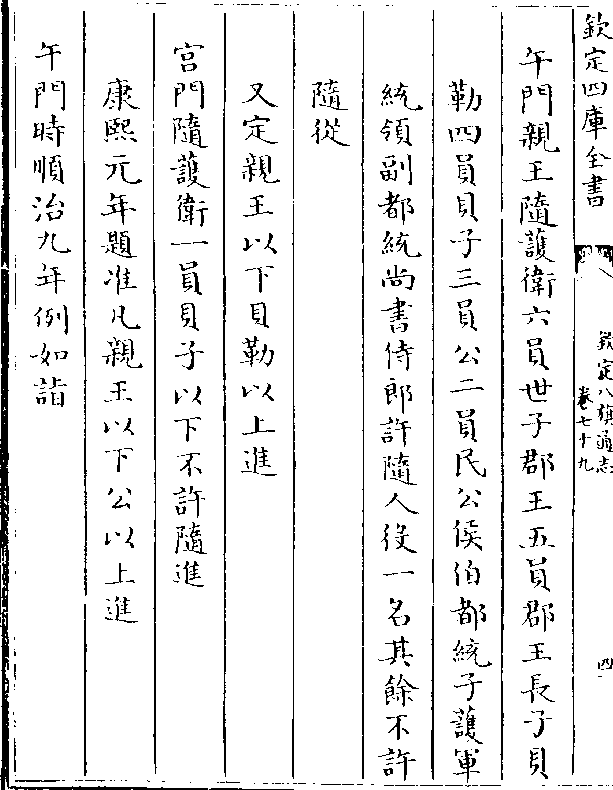 欽定四庫全書
欽定八旗通志
卷七十九
四
午門親王隨護衛六員世子郡王五員郡王長子貝
勒四員貝子三員公二員民公侯伯都統子護軍
統領副都統尚書侍郎許隨人役一名其餘不許
隨從
又定親王以下貝勒以上進
宫門隨護衛一員貝子以下不許隨進
康熙元年題准凡親王以下公以上進
午門時順治九年例如詣